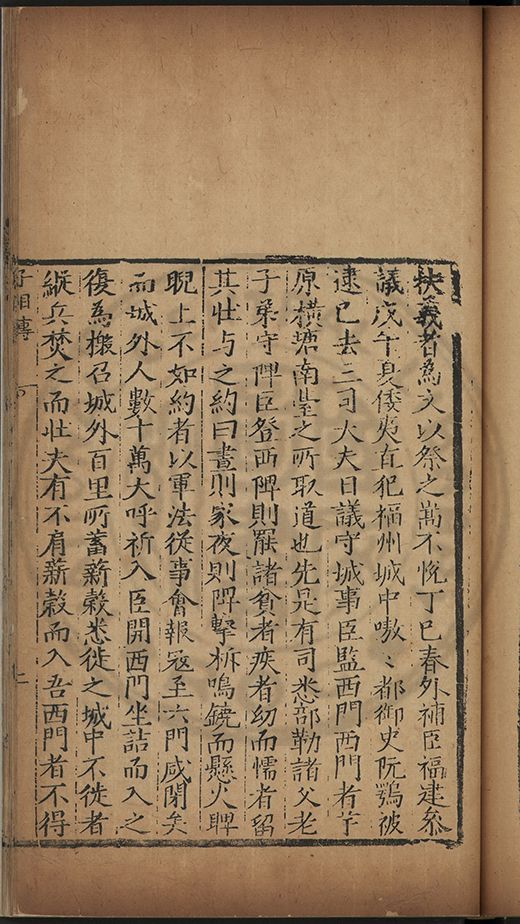 扶義者為文以祭之嵩不悅丁巳春外補臣福建叅
議戊午夏倭夷直犯福州城中嗷〻都御史阮鶚被
逮已去三司大夫日議守城事臣監西門西門者芋
原橫塘南臺之所取道也先是有司悉部勒諸父老
子弟守陴臣登西陴則罷諸貧者疾者幼而懦者留
其壯与之約曰晝則家夜則陴擊柝鳴鐃而懸火睥
睨上不如約者以軍法從事會報寇至六門咸閉矣
而城外人數十萬大呼祈入臣開西門坐詰而入之
復為檄召城外百里所蓄薪榖悉徙之城中不徙者
縱兵焚之而壯夫有不肩薪榖而入吾西門者不得